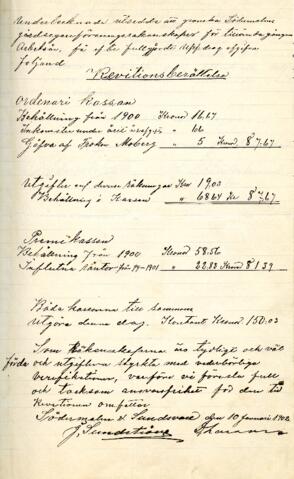 Undertecknade utsedde att granska Södermalms
gårdsegareförenings räkenskaper för tilländagångna
Arbetsår, få efter fullgjordt uppdrag afgifva
följand
Revitionsberättelse
Ordenari Kassan
Behållning från 1900 Kronor 16.67
Inkomster under året
Gåfva af Fröken Moberg " 5 Kronor 87.67
Utgifter enl. denna räkningar Kr 19.03
Behållning i Kassan " 68.64 Kr 87.67
Premi Kassan
Behållning från 1900 Kronor 58.56
Influtna räntor från 99-1901 " 22.83 Kronor 81.39
Båda kassorna till samman
utgöra denna dag. Kontant Kronor 150.03
Som Räkenskaperna äro tydligt och väl
förda och utgifterna styrkta med vederbörliga
verifikationer, varföre vi föreslå full
och tacksam ansvarsfrihet för den tid
Revitionen omfattar
Södermalm & Sundsvall den 10 januari 1902
J. Sundström